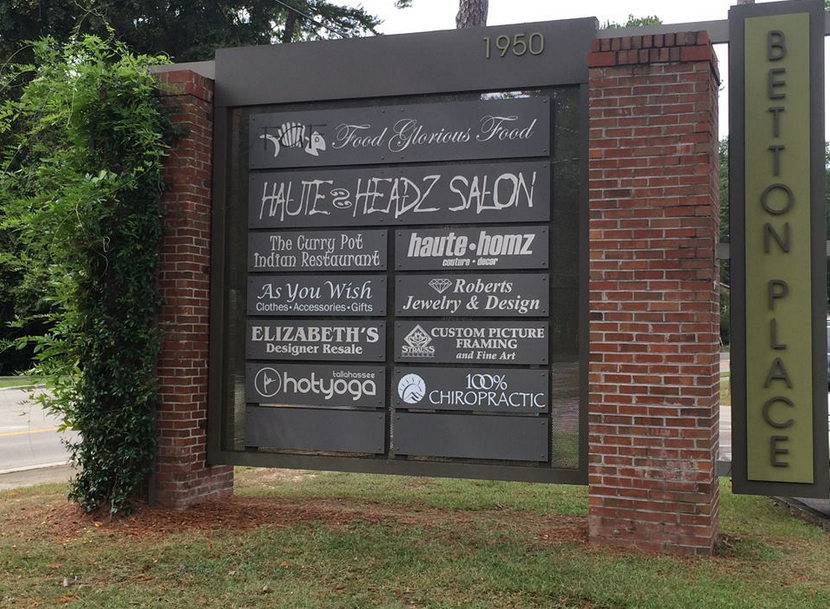 1950
Food Glorious Food
HAUTE HEADZ SALON
The Curry Pot
Indian Restaurant
haute • homz
couture • decor
As You Wish
Clothes • Accessories • Gifts
Roberts
Jewelry & Design
ELIZABETH'S
Designer Resale
CUSTOM PICTURE
FRAMING
and Fine Art
tallahassee
hotyoga
100%
CHIROPRACTIC
BETTON PLACE